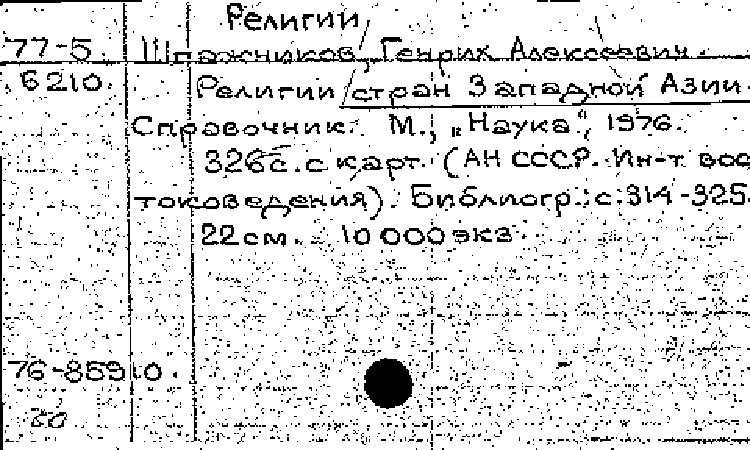 Религии
77-5 Шпажников, Генрих Алексеевич.
6210 Религии стран Западной Азии.
Справочник. М., „Наука“, 1976.
326с. с карт. (АН СССР. Ин-т вос
токоведения). Библиогр.: с. 314-325.
22 см. 10 000 экз.
76-85910.